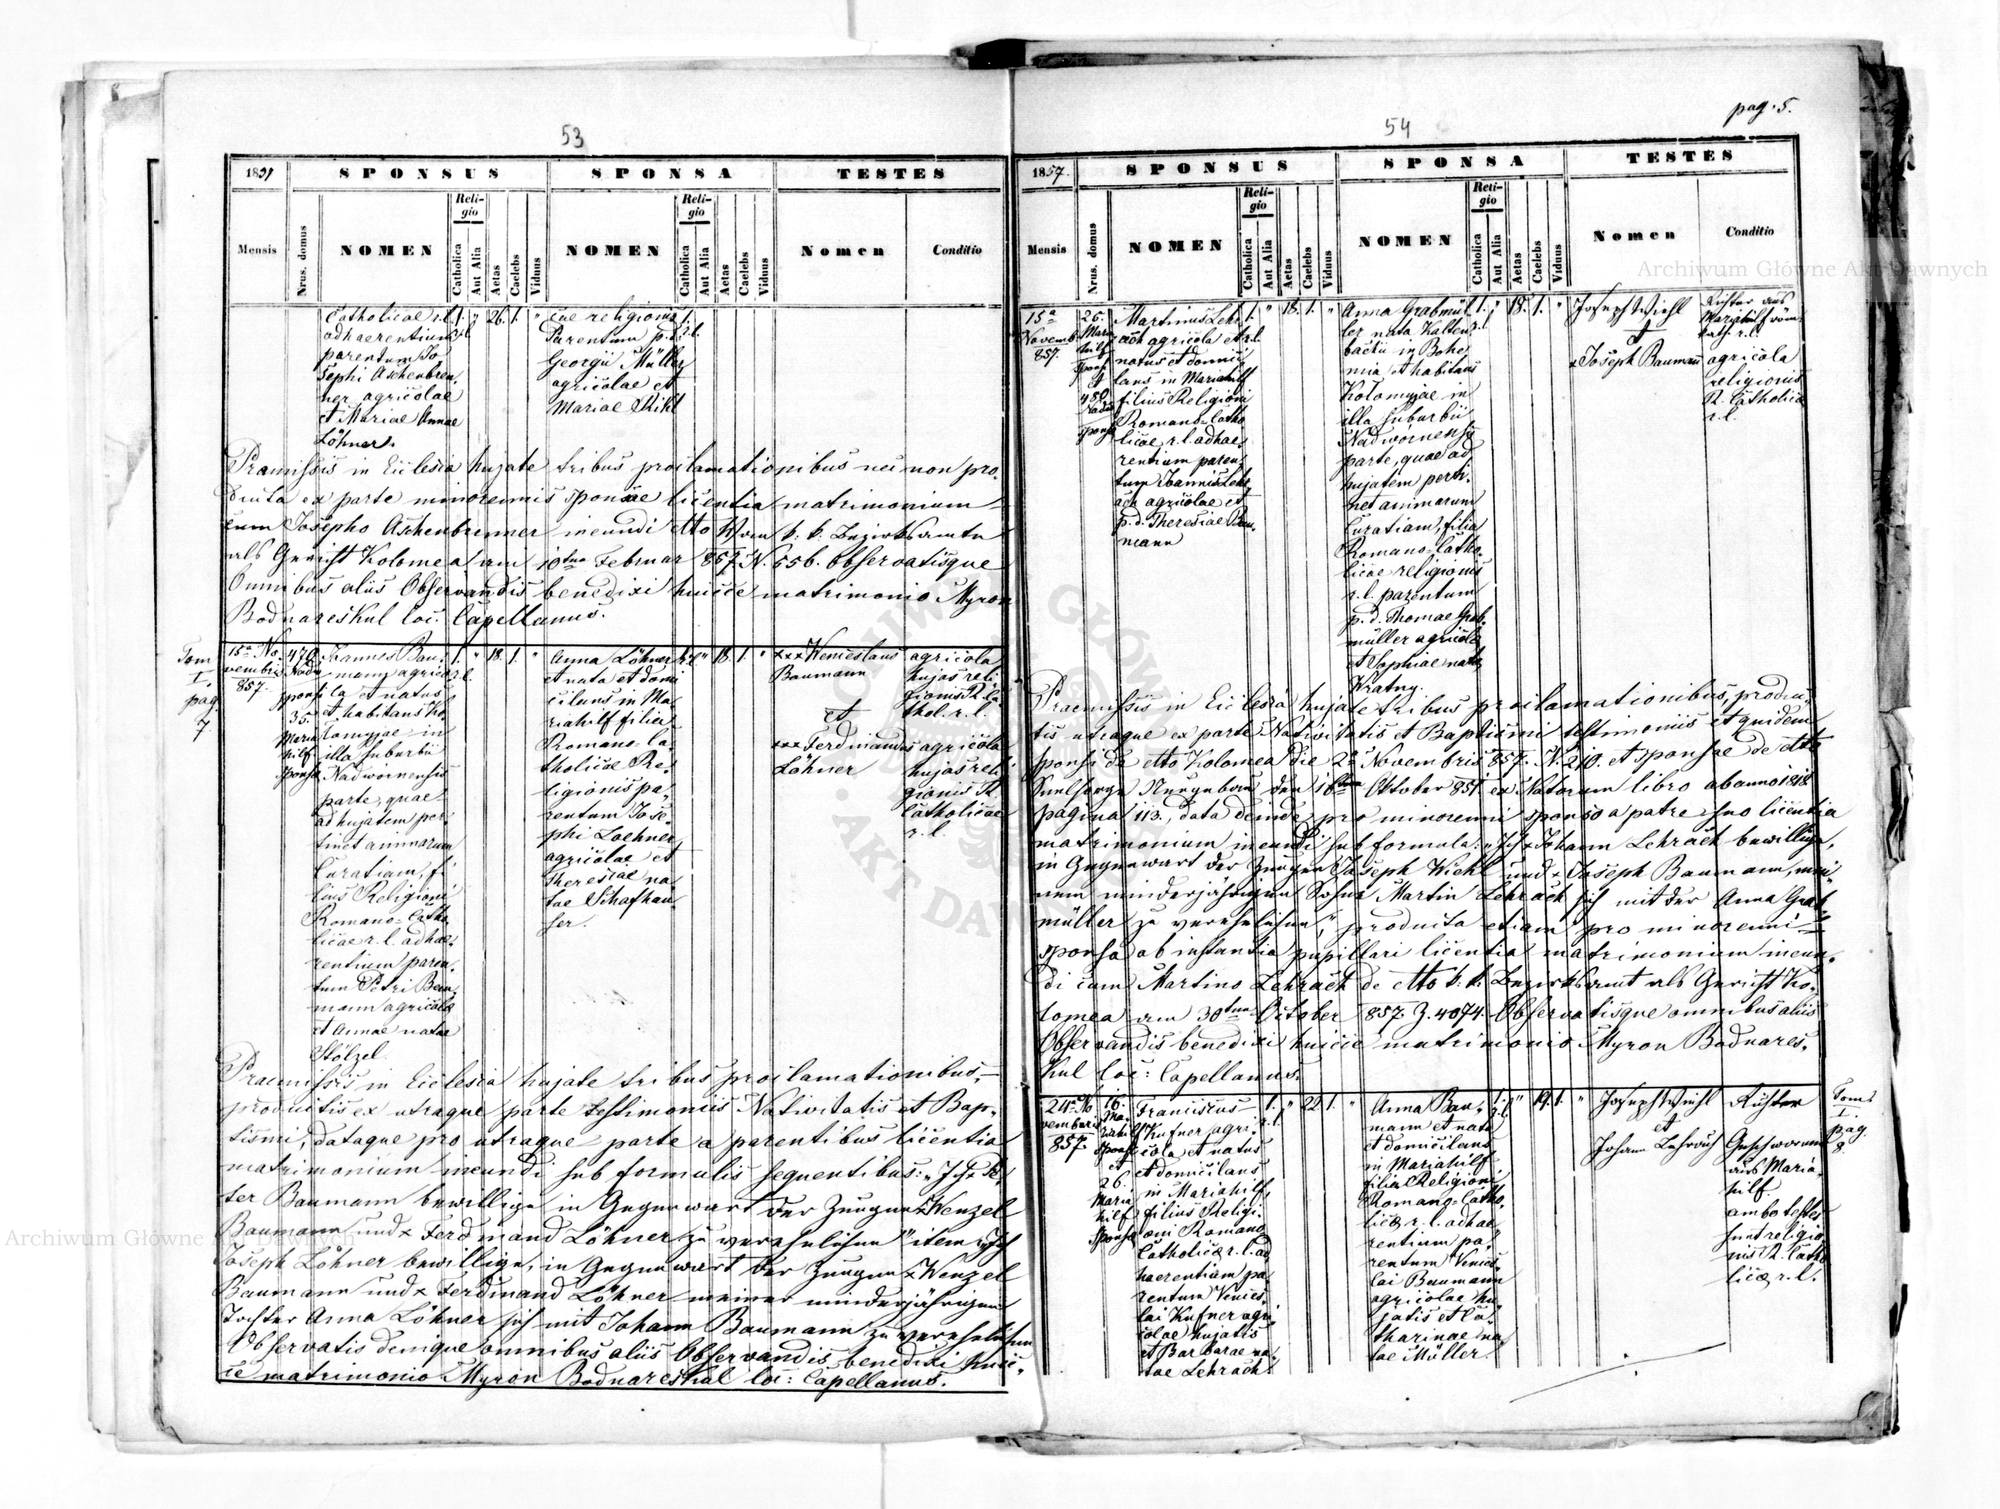 53
1857
SPONSUS
SPONSA
TESTES
Mensis
Nrus. domus
NOMEN
Religio
Catholica
Aut Alia
Aetas
Caelebs
Viduus
NOMEN
Religio
Catholica
Aut Alia
Aetas
Caelebs
Viduus
Nomen
Conditio
Catholicae r.l.
adhaerentium
parentum Jo-
sephi Aschenbren-
ner agricolae
et Mariae Annae
Löhner.
1. r.l. " 26. 1. "
cae religionis
Parentum p.d.
Georgii Müller
agricolae et
Mariae Stihl
1. r.l.
Praemissis in Ecclesia hujate tribus proclamationibus nec non pro-
ducta ex parte minorennis sponsae licentia matrimonium
cum Josepho Aschenbrenner ineundi dtto vom k. k. Bezirksamte
als Gericht Kolomea am 10ten Februar 857. N. 656. Observatisque
Omnibus aliis Observandis benedixi huicce matrimonio Myron
Bodnareskul loc. Capellanus.
Tom
I.
pag.
7
15a No-
vembris
857.
470
Nadw
sponsi
35.
Maria
hilf
sponsa
Joannes Bau-
mann agrico-
la et natus
et habitans Ko-
lomyjae in
illa suburbii
Nadwornensis
parte, quae
ad hujatem per-
tinet animarum
Curatiam, fi-
lius Religioni
Romano-Catho-
licae r.l. adhae-
rentium paren-
tum Petri Bau-
mann agricolae
et Annae natae
Stölzel.
1. r.l. " 18. 1. "
Anna Löhner
et nata et domi-
cilans in Ma-
riahilf filia
Romano-Ca-
tholicae Re-
ligionis pa-
rentum Jose-
phi Loehner
agricolae et
Theresiae na-
tae Schafhau-
ser.
" 18. 1. "
xxx Wenceslaus
Baumann
et
xxx Ferdinandus
Löhner
agricola
hujas reli-
gionis R. Ca-
thol. r.l.
agricola
hujas reli-
gionis R.
Catholicae
r.l.
Praemissis in Ecclesia hujate tribus proclamationibus,
productis ex utraque parte testimoniis Nativitatis et Bap-
tismi, dataque pro utraque parte a parentibus licentia
matrimonium ineundi sub formulis sequentibus: "Ich x Pe-
ter Baumann bewillige in Gegenwart der Zeugen x Wenzel
Baumann und x Ferdinand Löhner zu verehelichen" item "Ich
Joseph Löhner bewillige, in Gegenwart der Zeugen x Wenzel
Baumann und x Ferdinand Löhner meiner minderjährigen
Tochter Anna Löhner sich mit Johann Baumann zu verehelichen
Observatis denique omnibus aliis Observandis benedixi huic-
ce matrimonio Myron Bodnareskul loc: Capellanus.
pag. 5.
54
1857.
SPONSUS
SPONSA
TESTES
Mensis
Nrus. domus
NOMEN
Religio
Catholica
Aut Alia
Aetas
Caelebs
Viduus
NOMEN
Religio
Catholica
Aut Alia
Aetas
Caelebs
Viduus
Nomen
Conditio
15a
Novemb
857.
26.
Maria
hilf
sponsi
et
480
Nadw
sponsa
Martinus Lehr-
ach agricola et
natus et domici-
lans in Mariahilf
filius Religioni
Romano-Catho-
licae r.l. adhae-
rentium paren-
tum Joannis Lehr-
ach agricolae et
p.d. Theresiae Bau-
mann
1. r.l. " 18. 1. "
Anna Grabmül-
ler nata Kalten-
bachii in Bohe-
mia et habitans
Kolomyjae in
illa suburbii
Nadwornensis
parte, quae ad
hujatem perti-
net animarum
Curatiam, filia
Romano-Catho-
licae religionis
r.l. parentum
p.d. Thomae Grab-
müller agricolae
et Sophiae natae
Kratny.
1. r.l. " 18. 1. "
Joseph Wiehl
et
x Joseph Baumann
Richter aus
Mariahilf röm.
kath. r.l.
agricola
religionis
R. Catholicae
r.l.
Praemissis in Ecclesia hujate tribus proclamationibus, produc-
tis utraque ex parte Nativitatis et Baptismi testimoniis et quidem
sponsi de dtto Kolomea die 2a Novembris 857. N. 210. et sponsae de dtto
Seelsorge den 16ten Oktober 851 ex Natorum libro ab anno 1818
pagina 113., data deinde pro minorenni sponso a patre suo licentia
matrimonium ineundi sub formula: "Ich x Johann Lehrach bewillige,
in Gegenwart der Zeugen Joseph Wiehl und x Joseph Baumann, mei-
nem minderjährigen Sohne Martin Lehrach sich mit der Anna Grab-
müller zu verehelichen", producta etiam pro minorenni
sponsa ab instantia pupillari licentia matrimonium ineun-
di cum Martino Lehrach de dtto k. k. Bezirksamt als Gericht Ko-
lomea am 30ten October 857. Z. 4074. Observatisque omnibus aliis
Observandis benedixi huicce matrimonio Myron Bodnares-
kul loc: Capellanus.
24a No-
vembris
857.
16.
Ma-
riahilf
sponsi
et
26.
Maria
hilf
sponsa
Franciscus
Kufner agri-
cola et natus
et domicilans
in Mariahilf,
filius Religi-
oni Romano
Catholicae r.l. ad-
haerentium pa-
rentum Vences-
lai Kufner agri-
colae hujatis
et Barbarae na-
tae Lehrach.
1. r.l. " 22. 1. "
Anna Bau-
mann et nata
et domicilans
in Mariahilf
filia Religioni
Romano-Catho-
licae r.l. adhae-
rentium pa-
rentum Vences-
lai Baumann
agricolae hu-
jatis et Ca-
tharinae na-
tae Müller.
1. r.l. " 19. 1. "
Joseph Wiehl
et
Johann Lehrach
Richter
Geschworener
aus Maria-
hilf.
ambo testes
sunt religio-
nis R. Catho-
licae r.l.
Tom
I.
pag.
8.
Archiwum Główne Akt Dawnych
Archiwum Główne Akt Dawnych